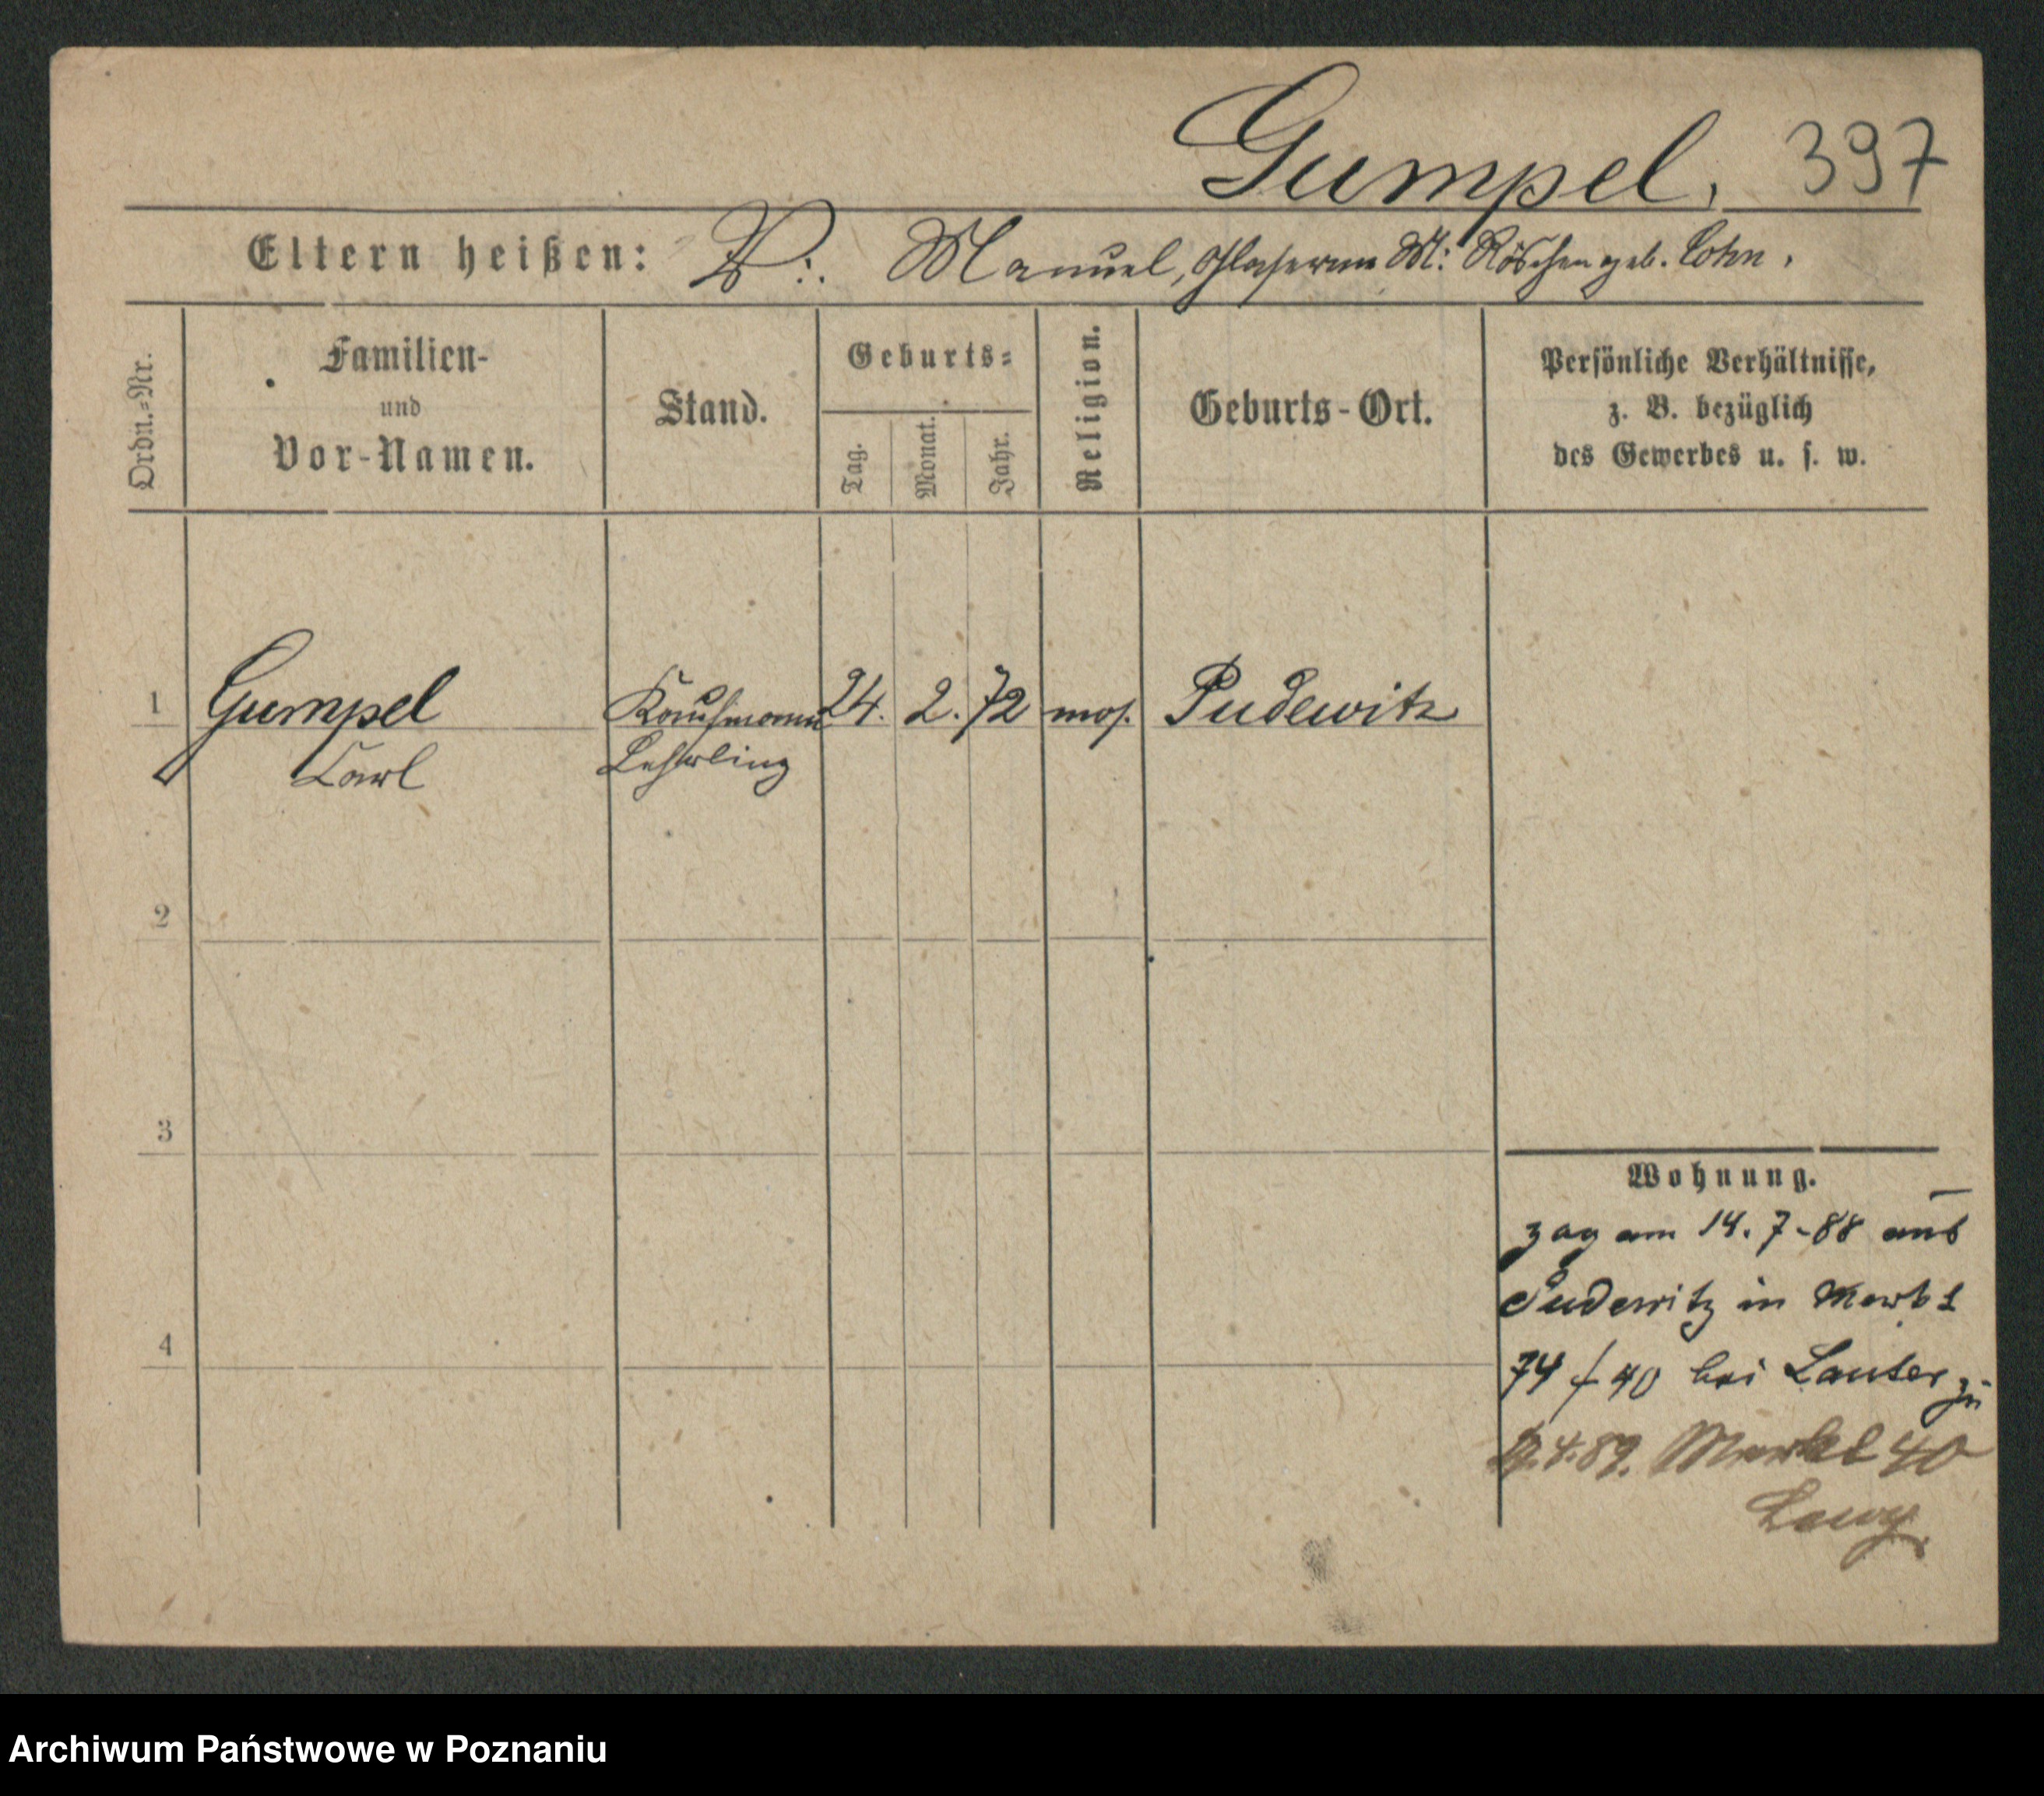 Gumpel. 397
Eltern heißen: V: Manuel, M: Röschen geb. Cohn.
Ordn.-Nr.
Familien-
und
Vor-Namen.
Stand.
Geburts-
Tag.
Monat.
Jahr.
Religion.
Geburts-Ort.
Persönliche Verhältnisse,
z. B. bezüglich
des Gewerbes u. s. w.
1 Gumpel Kaufmann 24. 2. 72 mos. Pudewitz
Carl Lehrling
2
3
4
Wohnung.
zog am 14. 7-88 aus
Pudewitz in Markt
74/40 bei Lauber zu
4.89. Markt 40
Lewy.
Archiwum Państwowe w Poznaniu